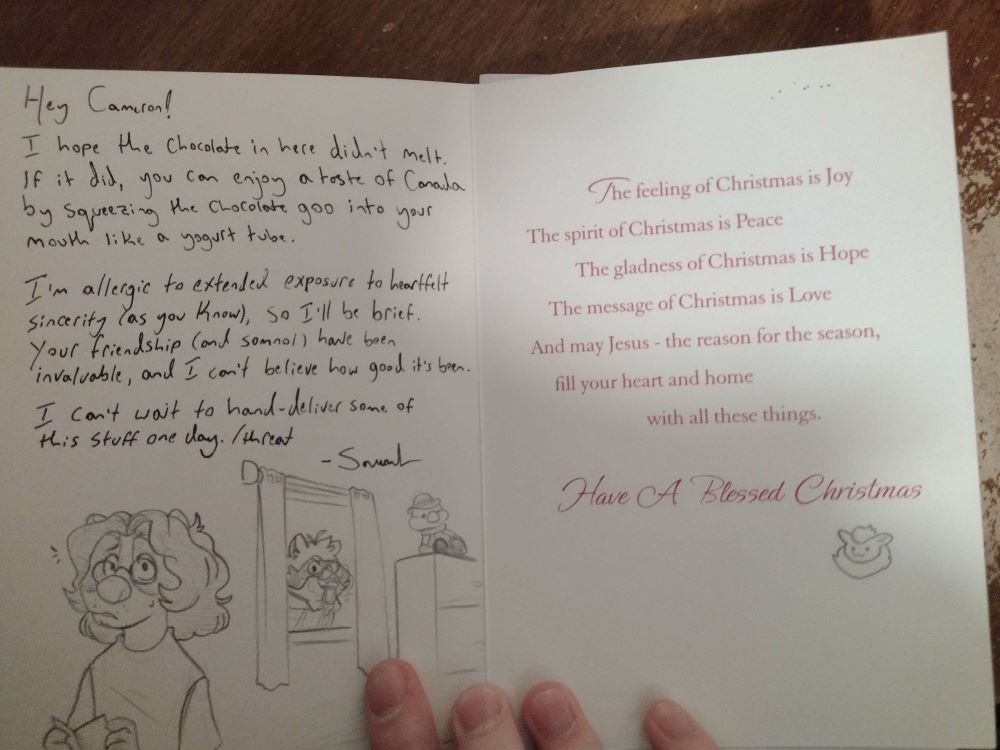 Hey Cameron!
I hope the chocolate in here didn't melt.
If it did, you can enjoy a taste of Canada
by squeezing the chocolate goo into your
mouth like a yogurt tube.
I'm allergic to extended exposure to heartfelt
sincerity (as you know), so I'll be brief.
Your friendship (and somnol) have been
invaluable, and I can't believe how good it's been.
I can't wait to hand-deliver some of
this stuff one day. /threat
The feeling of Christmas is Joy
The spirit of Christmas is Peace
The gladness of Christmas is Hope
The message of Christmas is Love
And may Jesus - the reason for the season,
fill your heart and home
with all these things.
Have A Blessed Christmas